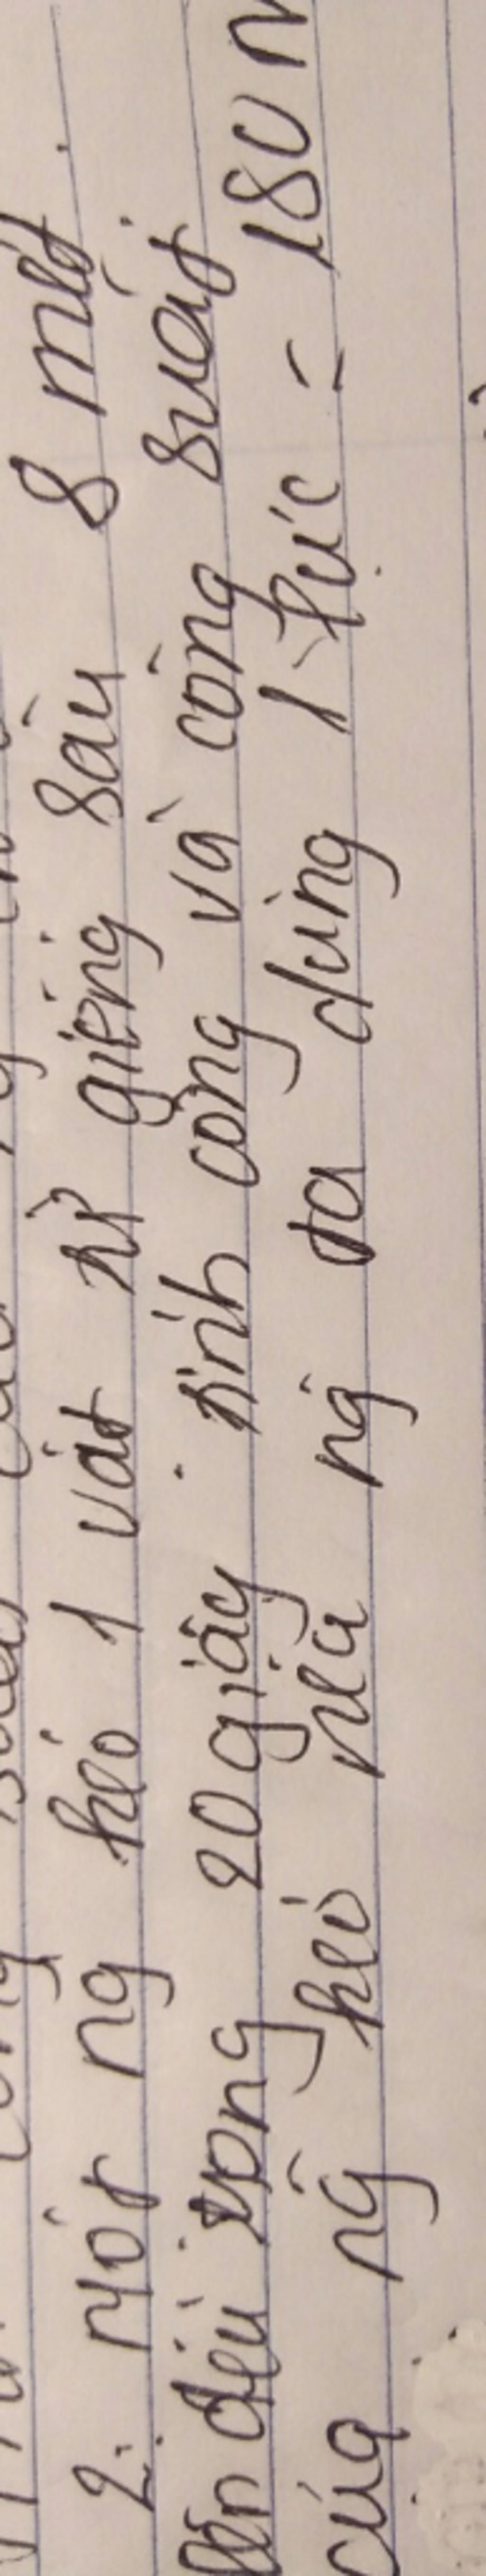 2. Một ng kéo 1 vật từ giếng sâu 8 mét.
lên đều trong 20 giây. tính công và công suất
của ng kéo nếu ng ta dùng 1 lực = 180 N